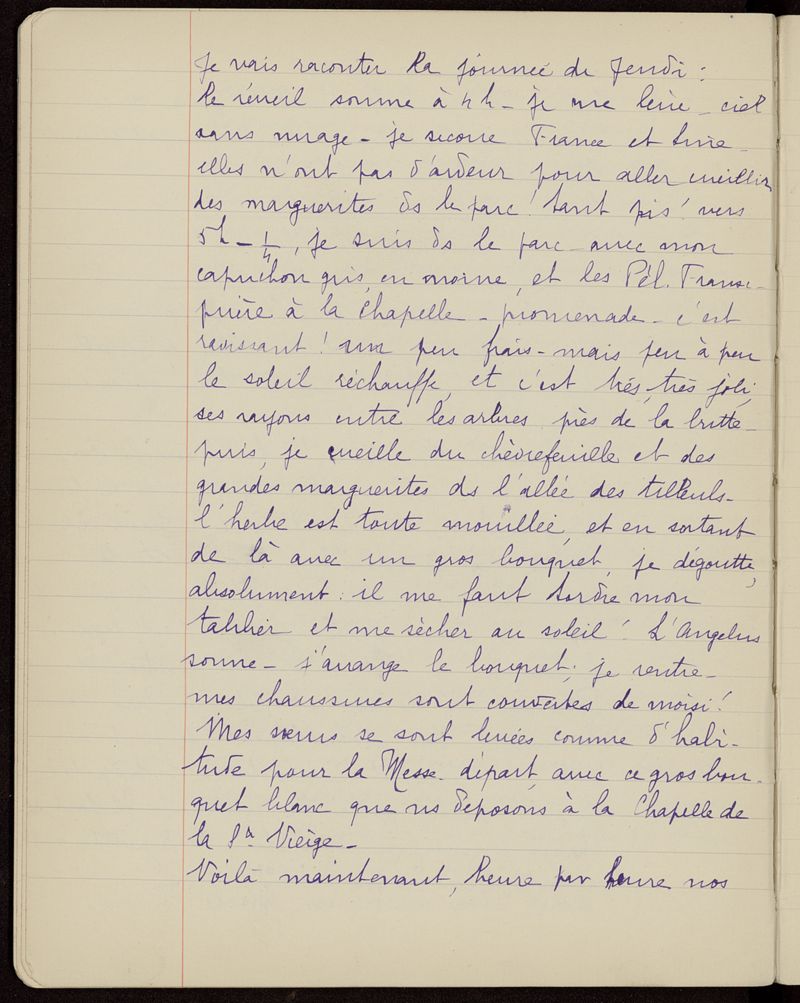 Je vais raconter la journée de Jeudi :
le réveil sonne à 4 h - je me lève - ciel
sans nuage - je secoue France et
elles n'ont pas d'ardeur pour aller cueillir
des marguerites ds le parc ! tant pis ! vers
5h - 1/4, je suis ds le parc - avec mon
capuchon gris, en moine, et les Pél. Franc -
prière à la Chapelle - promenade - c'est
ravissant ! un peu frais - mais peu à peu
le soleil réchauffe, et c'est très, très joli,
ses rayons entre les arbres près de la butte -
puis, je cueille du chèvrefeuille et des
grandes marguerites ds l'allée des tilleuls -
l'herbe est toute mouillée, et en sortant
de là avec un gros bouquet, je dégoutte,
absolument : il me faut tordre mon
tablier et me sècher au soleil ! L'Angelus
sonne - j'arrange le bouquet ; je rentre -
mes chaussures sont couvertes de moisi !
Mes sœurs se sont levées comme d'habi-
tude pour la Messe - départ, avec ce gros bou-
quet blanc que ns déposons à la Chapelle de
la Ste Vierge -
Voilà maintenant, heure par heure nos